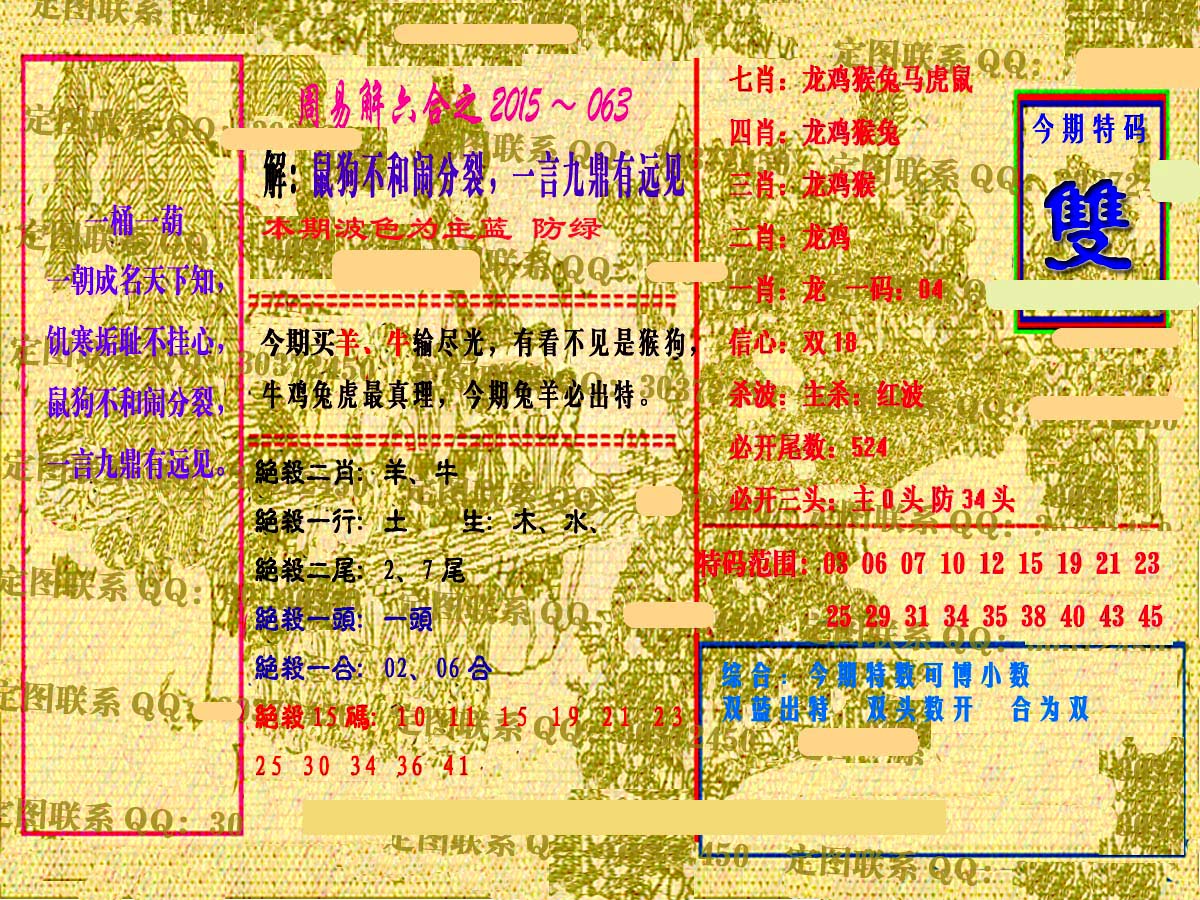 周易解六合之 2015～063
解：鼠狗不和闹分裂，一言九鼎有远见
本期波色为主蓝 防绿
一桶一葫
一朝成名天下知，
饥寒垢耻不挂心，
鼠狗不和闹分裂，
一言九鼎有远见。
今期买羊、牛输尽光，有看不见是猴狗，
牛鸡兔虎最真理，今期兔羊必出特。
絕殺二肖：羊、牛
絕殺一行：土 生：木、水、
絕殺二尾：2、7尾
絕殺一頭：一頭
絕殺一合：02、06合
絕殺15碼：10 11 15 19 21 23
25 30 34 36 41
七肖：龙鸡猴兔马虎鼠
四肖：龙鸡猴兔
三肖：龙鸡猴
二肖：龙鸡
一肖：龙 一码：04
信心：双18
杀波：主杀：红波
必开尾数：524
必开三头：主0头防34头
今期特码
雙
特码范围：03 06 07 10 12 15 19 21 23
25 29 31 34 35 38 40 43 45
综合：今期特数可博小数
双蓝出特 双头数开 合为双
定图联系 QQ：